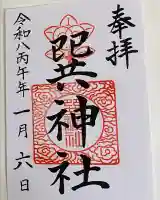 奉拝
巽神社
令和八丙午年一月六日